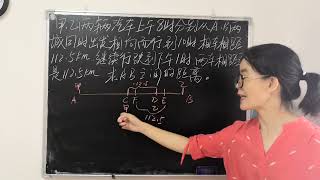 甲.乙两辆汽车上午8时分别从A.B两
城同时出发相向而行到10时相车相距
112.5km 继续行驶到下午1时两车相距
是112.5km 求AB之间的距离
甲
A C F D E B
甲 乙
112.5